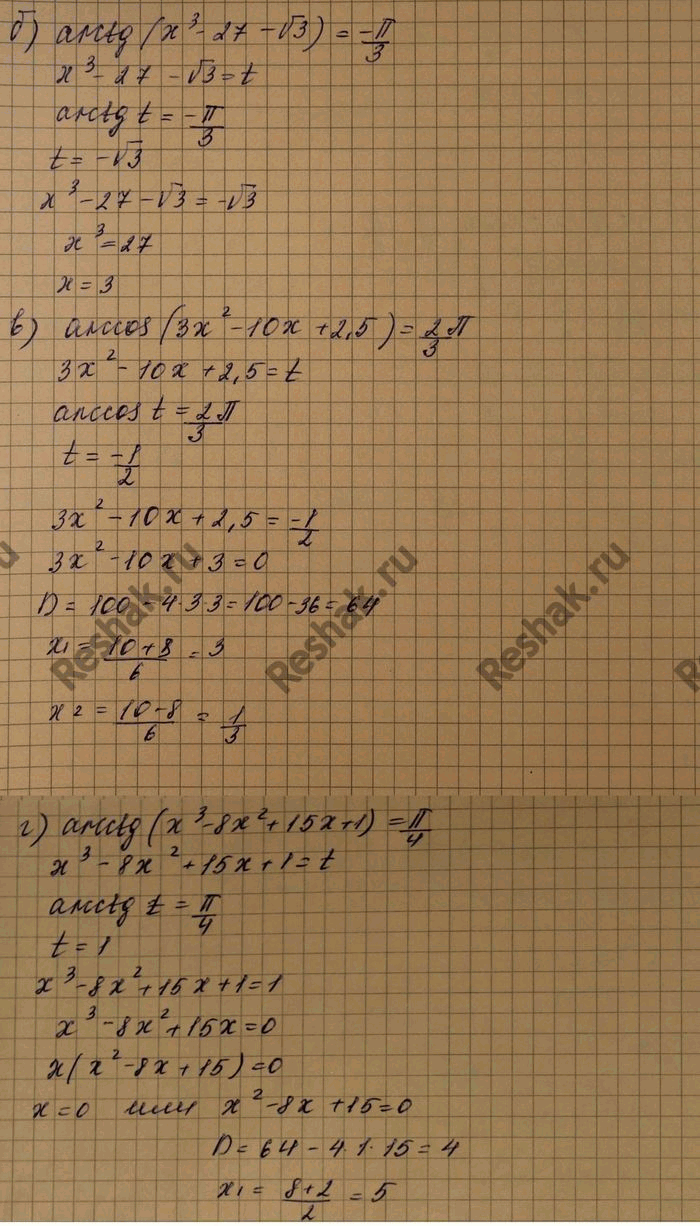 б) arctg (x³ - 27 - √3) = -π/3
x³ - 27 - √3 = t
arctg t = -π/3
t = -√3
x³ - 27 - √3 = -√3
x³ = 27
x = 3
в) arccos (3x² - 10x + 2,5) = 2π/3
3x² - 10x + 2,5 = t
arccos t = 2π/3
t = -1/2
3x² - 10x + 2,5 = -1/2
3x² - 10x + 3 = 0
D = 100 - 4·3·3 = 100 - 36 = 64
x₁ = (10+8)/6 = 3
x₂ = (10-8)/6 = 1/3
Reshak.ru Reshak.ru Reshak.ru
г) arctg (x³ - 8x² + 15x + 1) = π/4
x³ - 8x² + 15x + 1 = t
arctg t = π/4
t = 1
x³ - 8x² + 15x + 1 = 1
x³ - 8x² + 15x = 0
x(x² - 8x + 15) = 0
x = 0 или x² - 8x + 15 = 0
D = 64 - 4·1·15 = 4
x₁ = (8+2)/2 = 5